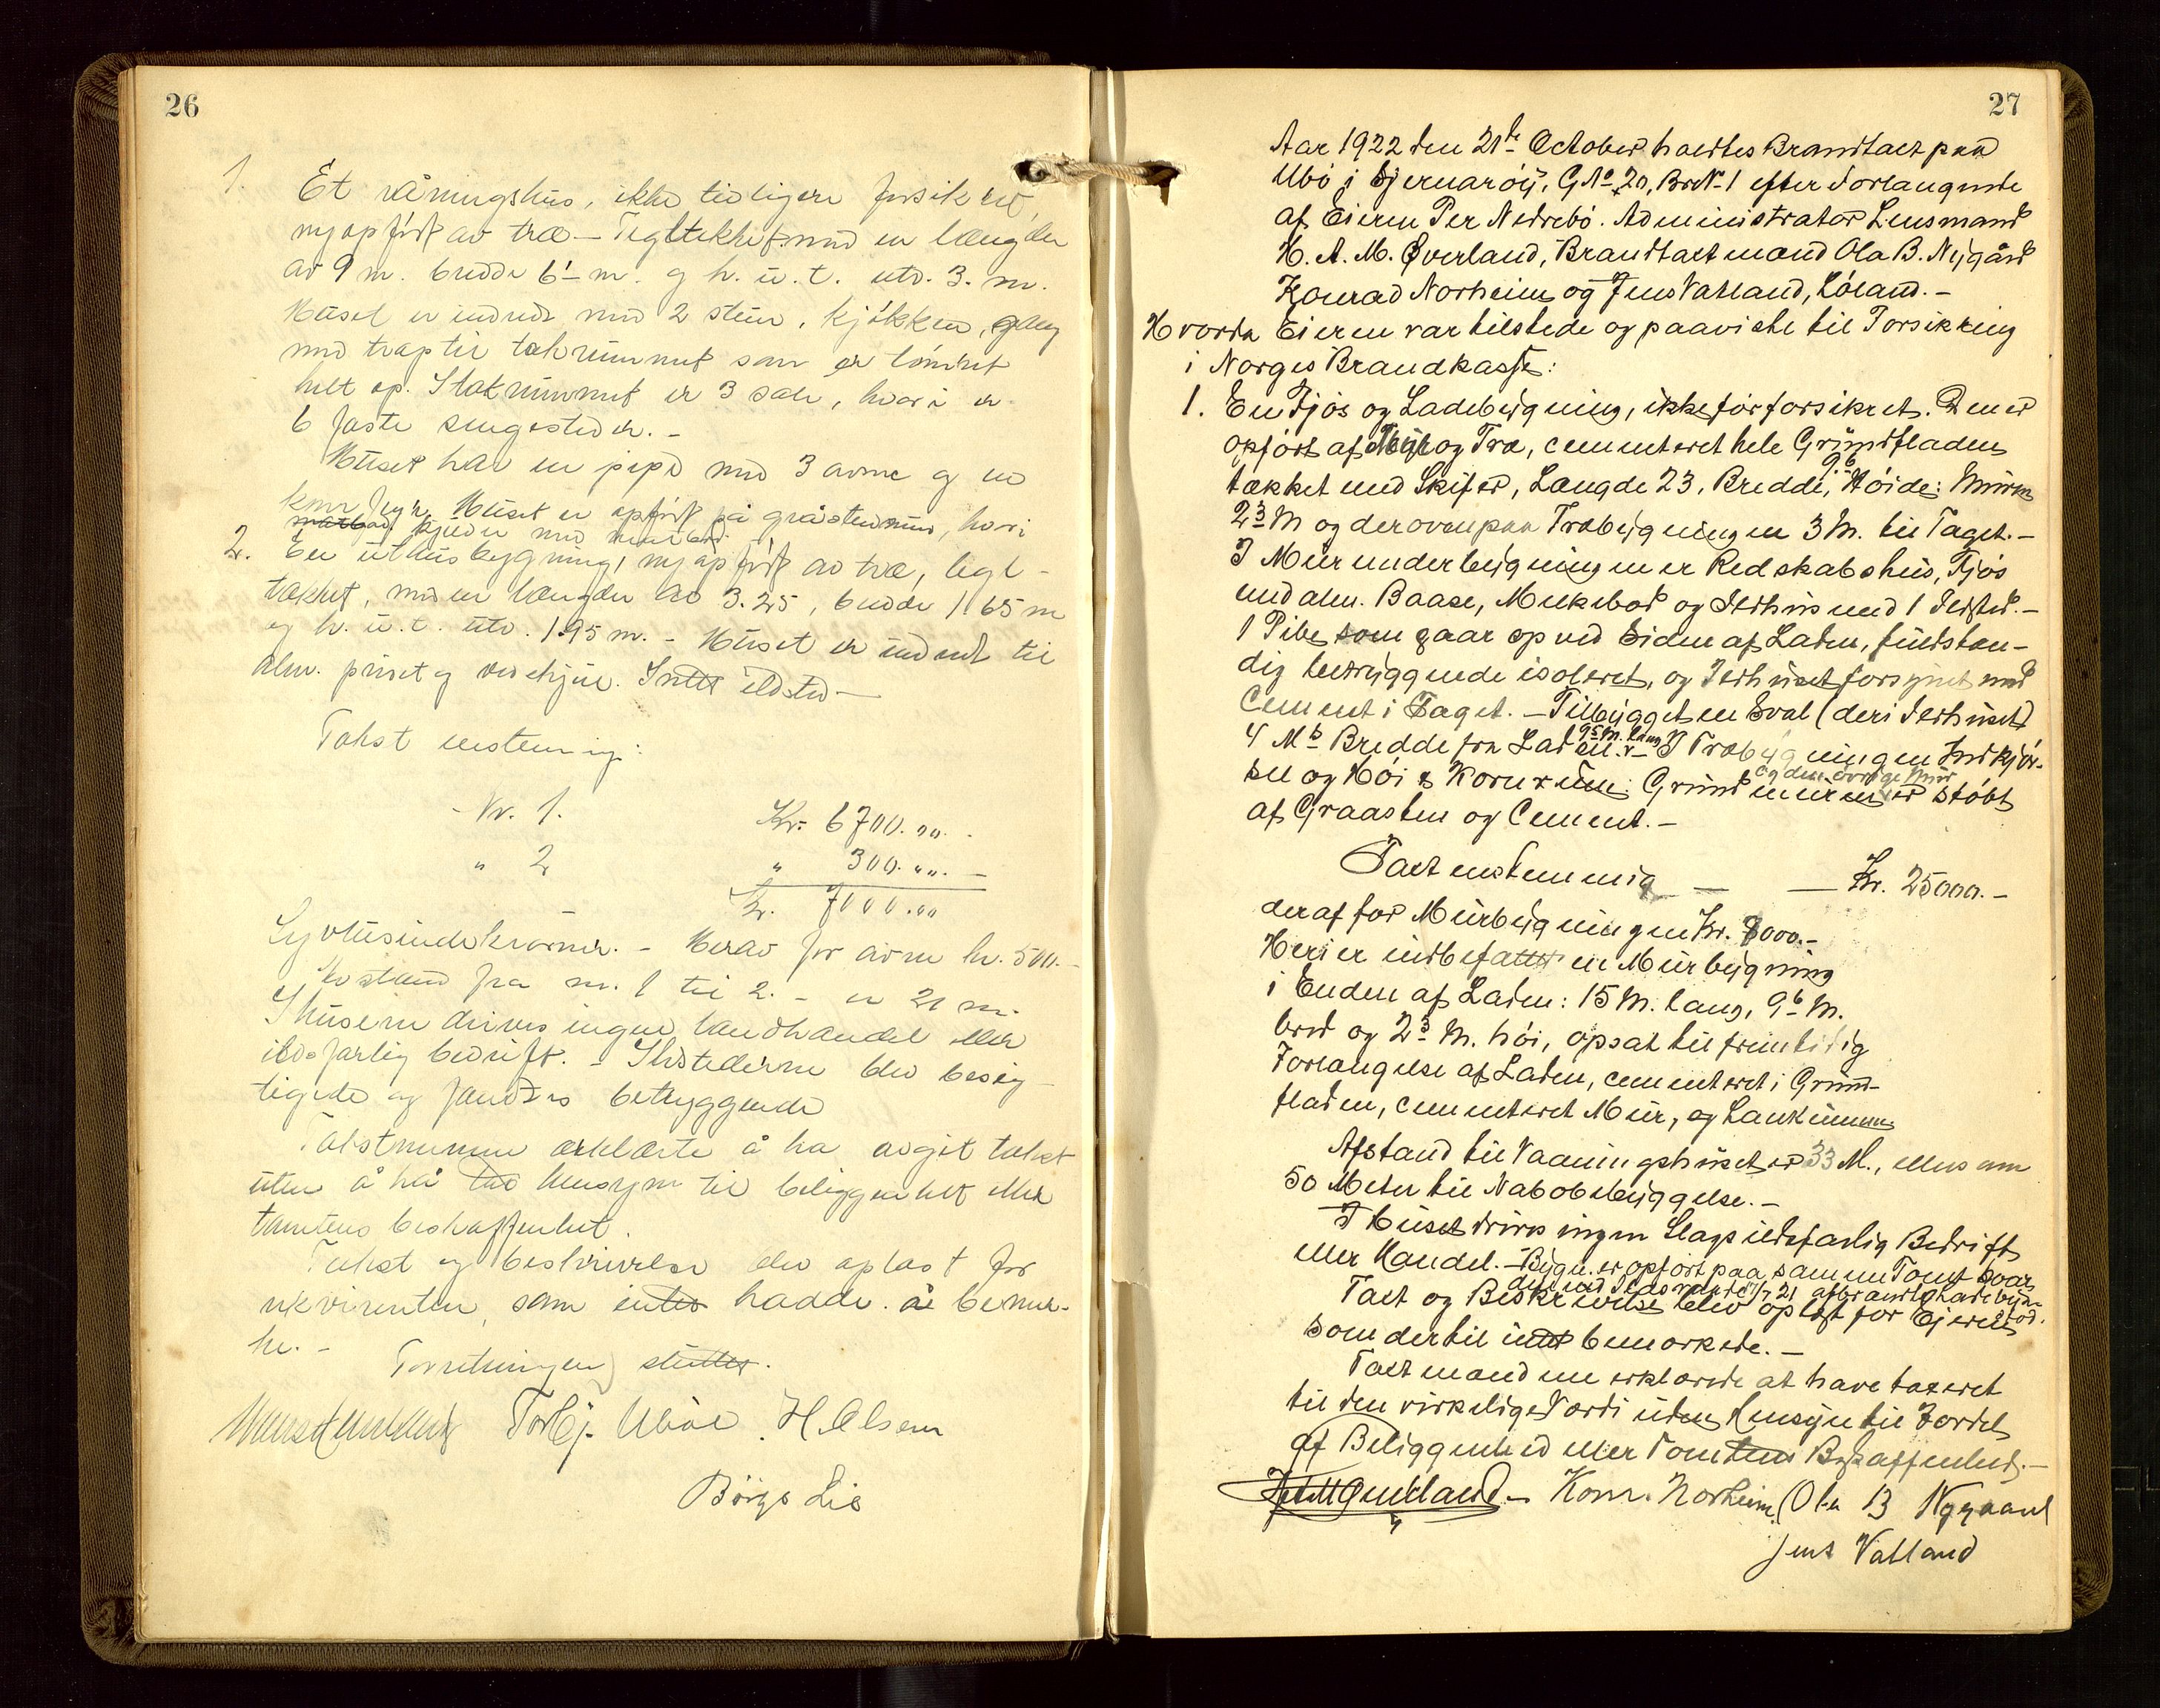 26
1. Et våningshus, ikke tidligere forsikret,
nyopført av træ – Teglteknet med en længde
av 9 m. bredde 6 1/2 m. og h. u. t. utv. 3. m.
Huset er indredt med 2 stuer, kjøkken, gang
med trap til takrummet som er tømret
helt op. I takrummet er 3 sale, hvori er
6 faste sengesteder. –
Huset har en pipe med 3 avne og en
Huset er opført på gråstensmur, hvori
kjelder med
2. En uthusbygning, nyopført av træ, tegl-
tækket, med en længde av 3.25, bredde 1.65 m
og h. u. t. utv. 1.95 m. – Huset er indredt til
alm. priset og vedskjul. Intet ildsted –
Takst enstemmig:
Nr. 1. Kr. 6700.00. -
" 2 " 300.00. –
Kr. 7000.00
Syvtusindekroner. – Herav for avne kr. 500. –
Avstand fra nr. 1 til 2. – er 21 m.
I husene drives ingen landhandel eller
ildsfarlig bedrift. – Ildstederne blev besig-
tigede og fandtes betryggende
Takstmennene erklærte å ha avgit takst
uten å ha hensyn til beliggenhet eller
tomtens beskaffenhet.
Takst og beskrivelse blev oplæst for
rekvirenten, som intet hadde å bemer-
ke. –
Forretningen sluttet.
Torbj. Uböe H. Olsen
Börge Lie
27
Aar 1922 den 21de October holdtes Brandtaxt paa
Ubö i Sjernaröy, G.No 20, Br.N. 1 efter Forlangende
af Eieren Per Nedrebö. Administrator Lensmand
H. A. M. Qverland, Brandtaxtmænd Ola B. Nygård
Konrad Norheim og Jens Valland, Löland. –
Hvorda Eieren var tilstede og paaviste til Forsikring
i Norges Brandkasse:
1. En Fjös og Ladebygning, ikke för forsikret. Den er
opfört af Mur og Træ, cementeret hele Grundfladen
9.6
tækket med Skifer, Længde 23, Bredde, Höide: Muren
2 3 M og derovenpaa Træbygningen 3 M. til Taget. –
I Murunderbygningen er Redskabshus, Fjös
med alm. Baase, Melkebod og Ildhus med 1 Ildsted. –
1 Pibe som gaar op ved Siden af Laden, fuldstæn-
dig betryggende isoleret, og Ildhuset forsynet med
Cement i Taget. – Tilbygget en Sval (deri Ildhuset)
9 5 M. lang
4 M b Bredde fra Laden. – I Træbygningen Indkjör-
sel og Höi & Kornrum. Grundmuren er stöbt
og den övrige Mur
af Graasten og Cement. –
Taxt enstemmig — — Kr. 25000. –
deraf for Murbygningen Kr. 8000. –
Heri er indbefattet en Murbygning
i Enden af Laden: 15 M. lang, 9 6 M.
bred og 2 3 M. höi, opsat til fremtidig
Forlængelse af Laden, cementeret i Grund-
fladen, cementeret Mur, og Landkummen
Afstand til Vaaningshuset er 33 M., ellers om
50 Meter til Nabobebyggelse. –
I Huset drives ingen Slags ildsfarlig Bedrift
eller Handel. – Bygn. er opfört paa samme Tomt hvor
den ved Ildsvaade 21 afbrændte Ladebygn. stod.
Taxt og Beskrivelse blev oplæst for Ejeren
som dertil intet bemærkede. –
Taxtmændene erklærede at have taxeret
til den virkelige Værdi uden Hensyn til Fordel
af Beliggenhed eller Tomtens Beskaffenhed. –
H A M Qverland – Konr. Norheim Ola B Nygaard
Jens Valland